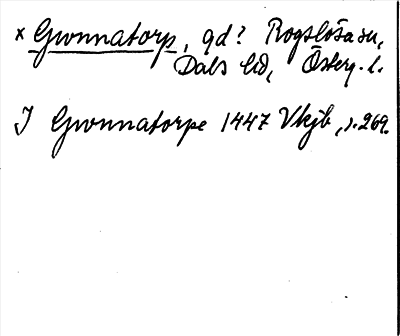 × Gwnnatorp, gd? Rogslösa sn,
Dals hd, Österg. l.
J Gwnnatorpe 1447 Vkjb, s. 269.